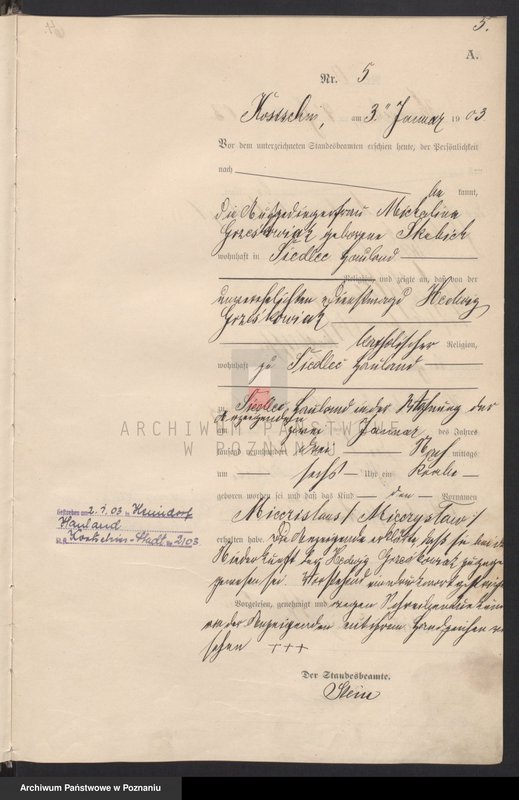 5.
A.
Nr. 5
Kostschin, am 3. Januar 1903
Vor dem unterzeichneten Standesbeamten erschien heute, der Persönlichkeit
nach
be kannt,
die Ausgedingerfrau Michalina
Grzeskowiak geborene Skubich
wohnhaft in Siedlec Hauland
Religion, und zeigte an, daß von der
unverehelichten Dienstmagd Hedwig
Grzeskowiak
katholischer Religion,
wohnhaft zu Siedlec Hauland
zu Siedlec Hauland in der Wohnung der
Anzeigenden
am zwei Januar des Jahres
tausend neunhundert drei Nach mittags
um sechs Uhr ein Knabe
geboren worden sei und daß das Kind den Vornamen
Miecislaus / Mieczysław /
erhalten habe. Die Anzeigende erklärte, daß sie bei der
Niederkunft der Hedwig Grzeskowiak zugegen
gewesen sei. Vorstehend
Vorgelesen, genehmigt und wegen Schreibensunkunde
von der Anzeigenden mit ihrem Handzeichen ver
sehen +++
Der Standesbeamte.
Stein
Gestorben am 2. 1. 03 in
Hauland
St.A. Kostschin-Stadt No 2/03
ARCHIWUM PAŃSTWOWE
W POZNANIU
Archiwum Państwowe w Poznaniu